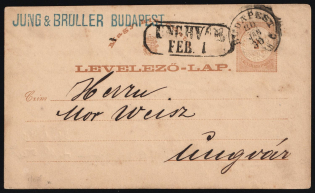 JUNG & BRULLER BUDAPEST
UNGHVÁR
FEB. 1
BUDAPEST
LEVELEZŐ-LAP.
Czím
Herrn
Mor Weisz
Ungvár